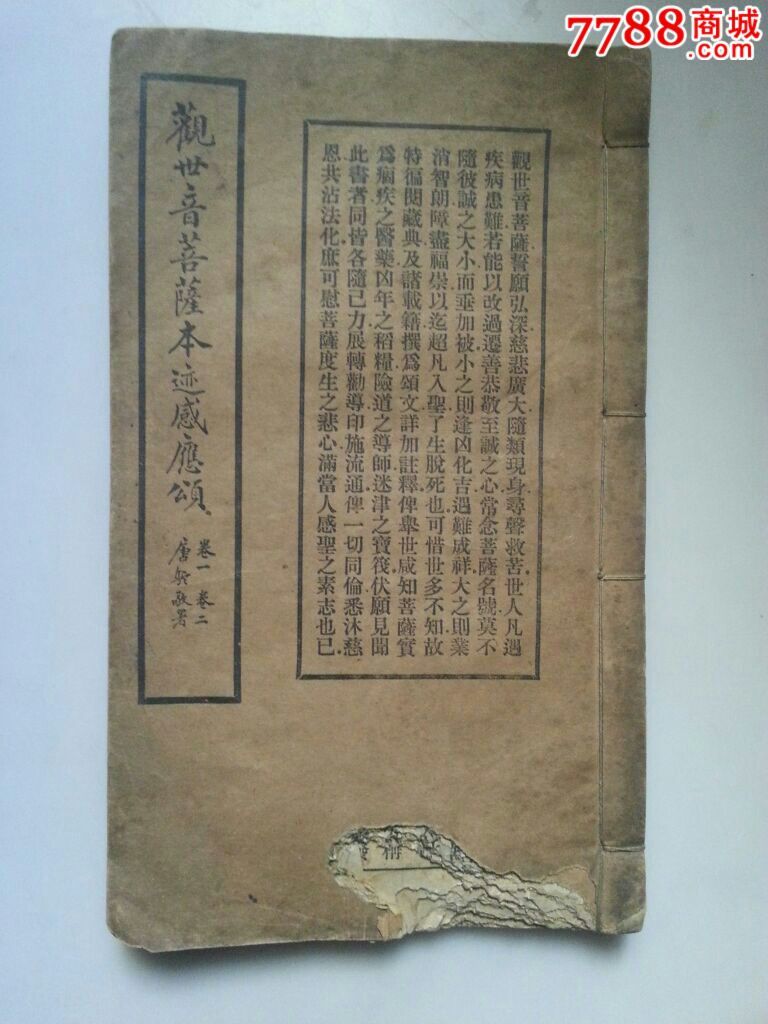 7788商城
.com
觀世音菩薩本迹感應頌
卷一 卷二
敬署
觀世音菩薩誓願弘深慈悲廣大隨類現身尋聲救苦世人凡遇
疾病患難若能以改過遷善恭敬至誠之心常念菩薩名號莫不
隨彼誠之大小而垂加被小之則逢凶化吉遇難成祥大之則業
消智朗障盡福崇以迄超凡入聖了生脫死也可惜世多不知故
特徧閱藏典及諸載籍撰爲頌文詳加註釋俾舉世咸知菩薩實
爲痼疾之醫藥凶年之稻糧險道之導師迷津之寶筏伏願見聞
此書者同皆各隨己力展轉勸導印施流通俾一切同倫悉沐慈
恩共沾法化庶可慰菩薩度生之悲心滿當人感聖之素志也已